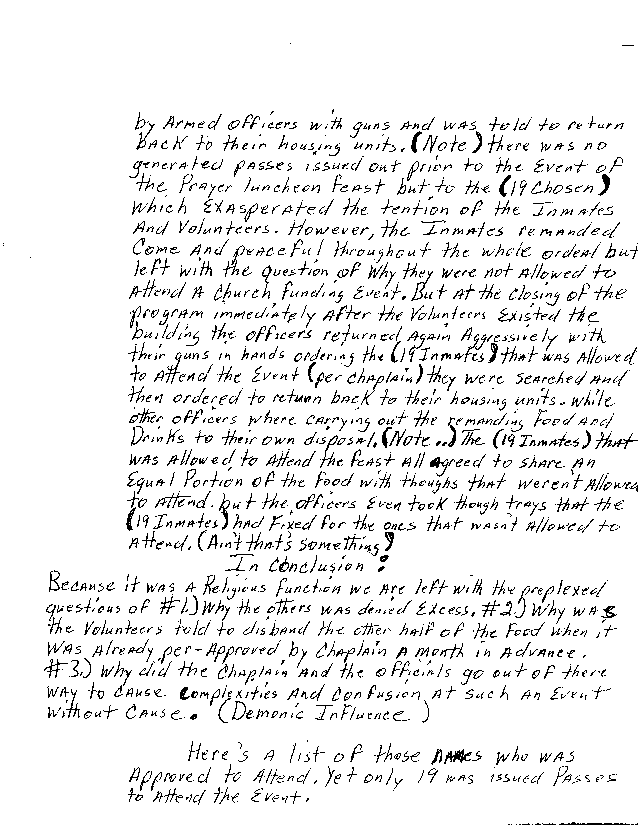 by Armed officers with guns And was told to return
BACK to their housing units. (Note) there was no
generated passes issued out prior to the Event of
the Prayer luncheon feast but to the (19 Chosen)
which Exasperated the tention of the Inmates
And Volunteers. However, the Inmates remanded
Come And peaceful throughout the whole ordeal but
left with the question of Why they were not Allowed to
Attend A Church funding Event. But At the closing of the
program immediately After the Volunteers Existed the
building the officers returned Again Aggressively with
their guns in hands ordering the (19 Inmates) that was Allowed
to Attend the Event (per Chaplain) they were searched And
then ordered to return back to their housing units. while
other officers where carrying out the remanding Food and
Drinks to their own disposal. (Note..) The (19 Inmates) that
was Allowed to Attend the feast All agreed to share An
Equal Portion of the food with thoughs that werent Allowed
to Attend. but the officers Even took though trays that the
(19 Inmates) had Fixed for the ones that wasn't Allowed to
Attend. (Ain't that's something)
In Conclusion:
Because it was A Religious function we are left with the preplexed
questions of #1.) Why the others was denied Excess. #2.) Why was
the Volunteers told to disband the other half of the Food when it
was Already per-Approved by Chaplain A month in Advance.
#3.) Why did the Chaplain And the officials go out of there
way to cause Complexities And Confusion At such An Event
Without Cause. (Demonic Influence)
Here's A list of those names who was
Approved to Attend. Yet only 19 was issued Passes
to Attend the Event.